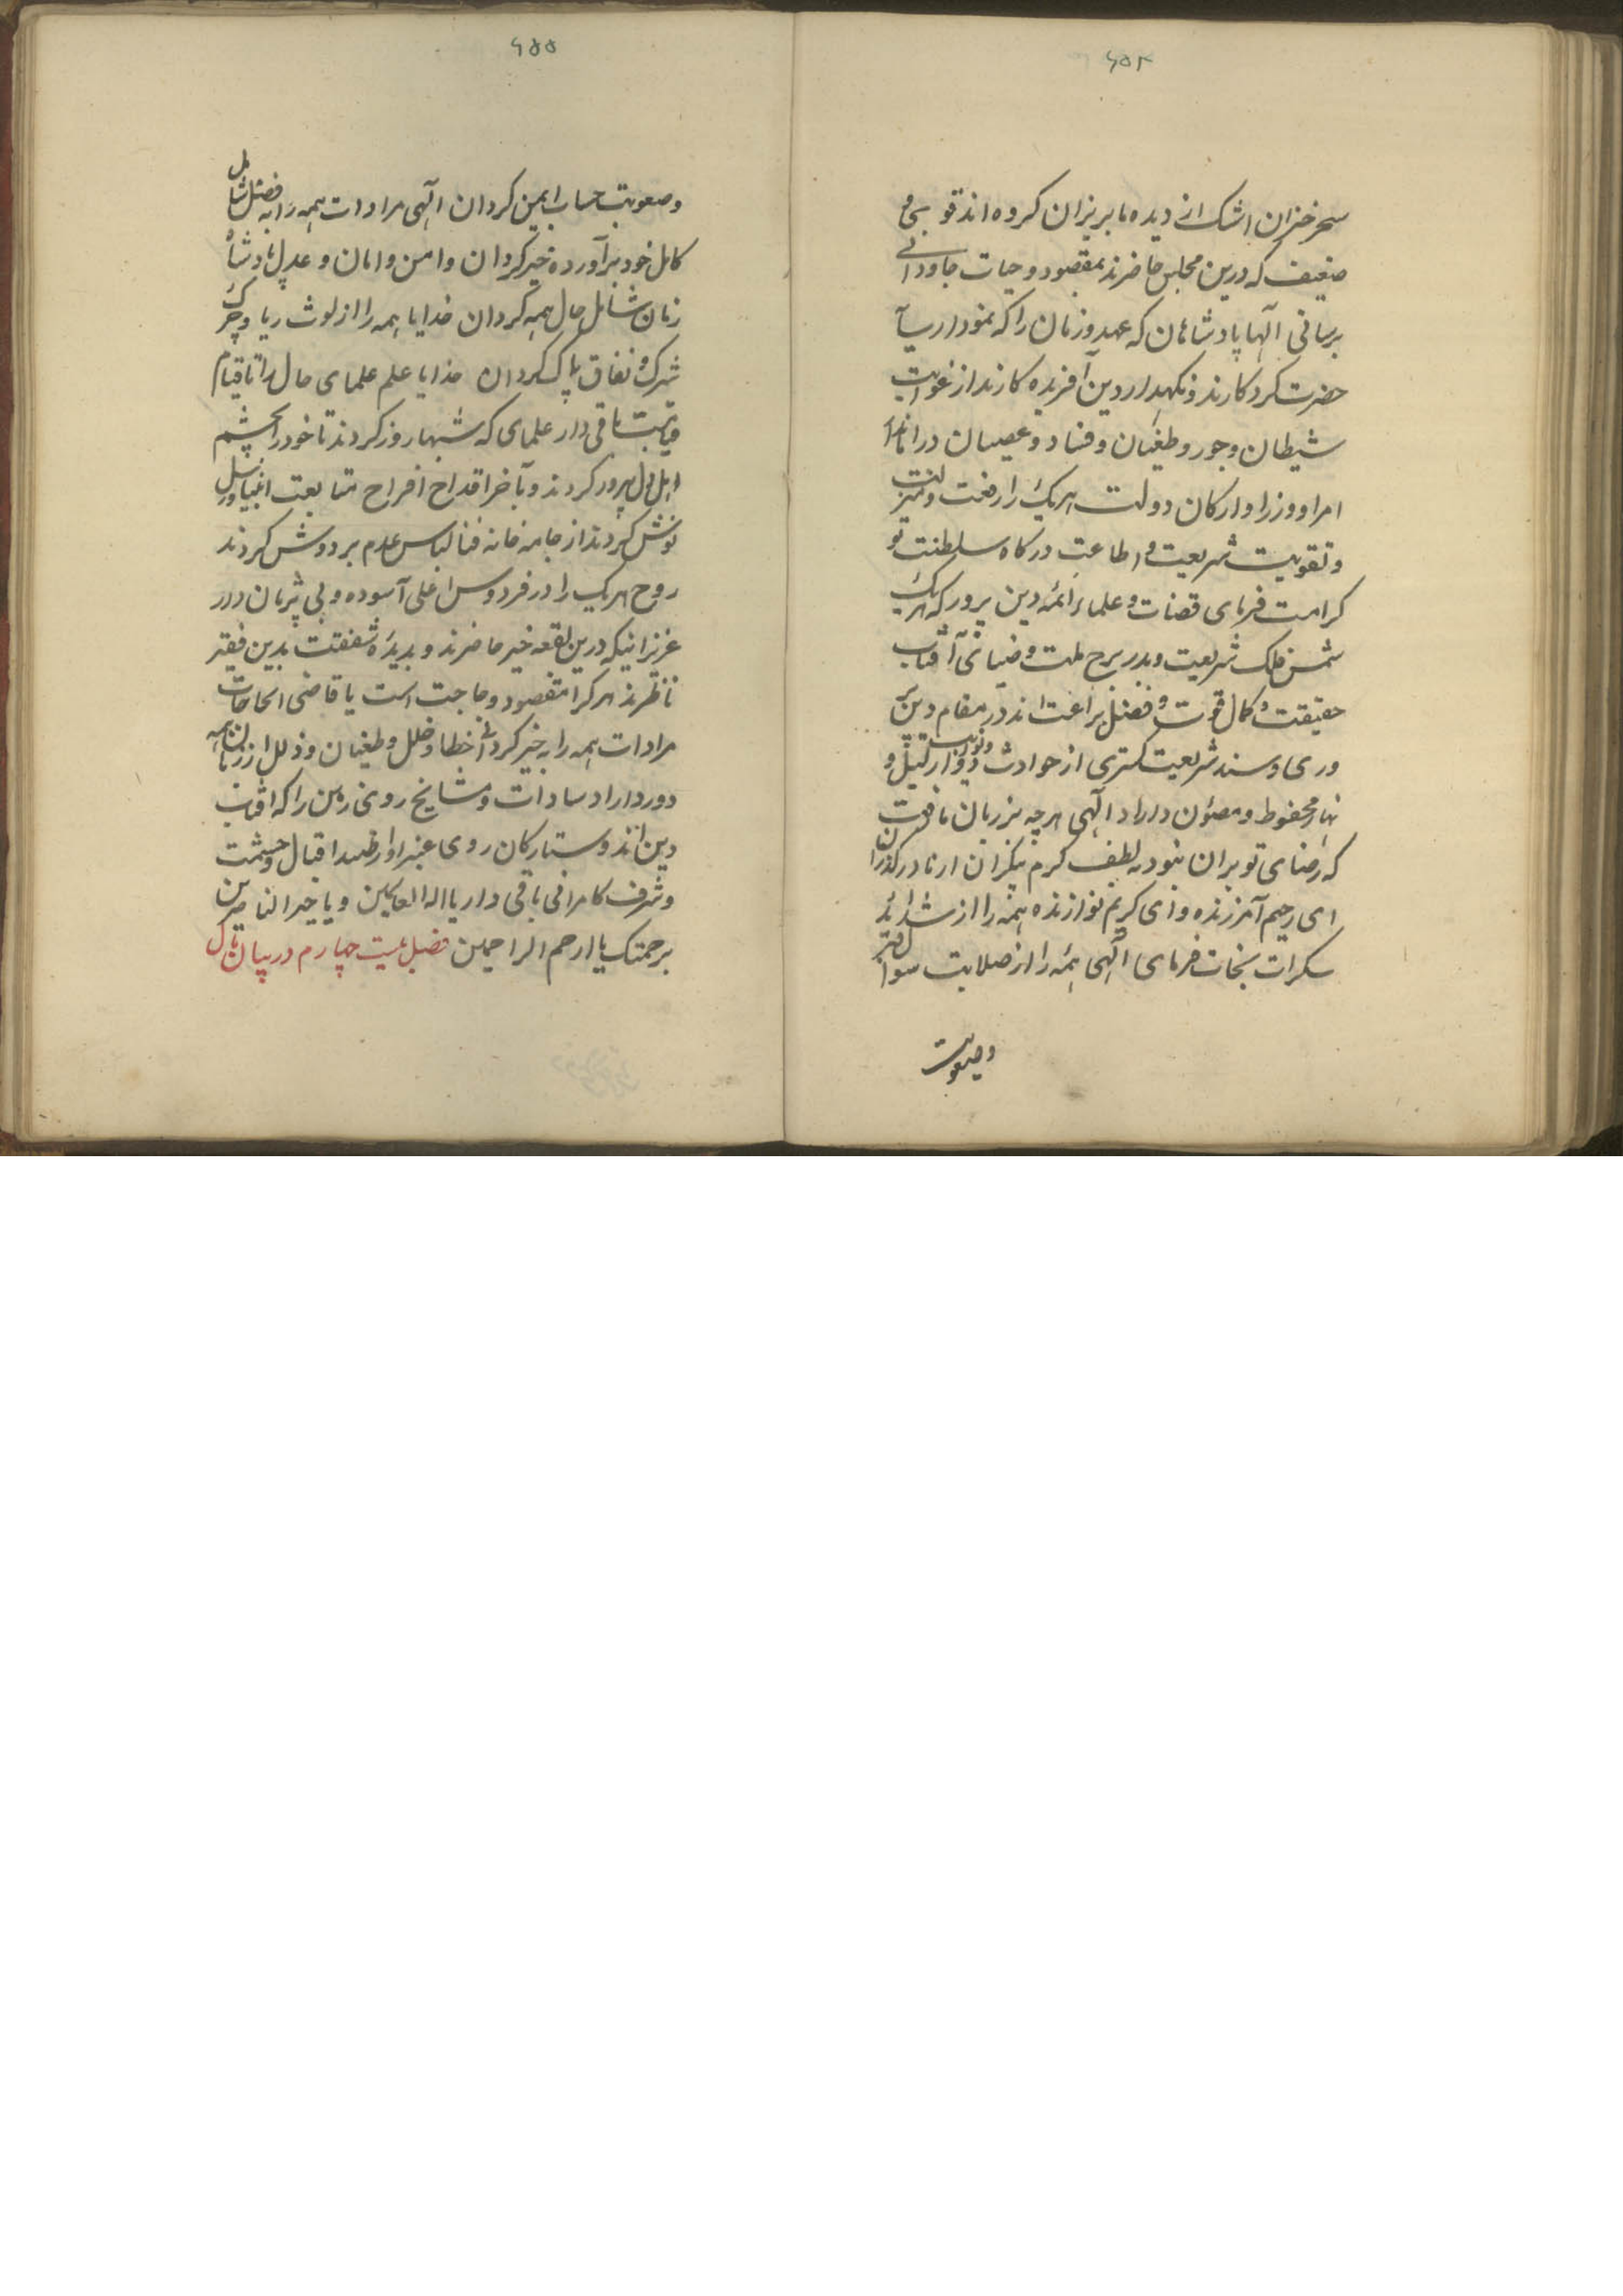 ۶۵۴
سحر خیزان اشک از دیده ما بریزان کرده اند قوی و
ضعیف که درین مجلس حاضرند بمقصود و حیات جاودانی
برسانی الٓها پادشاهان که عهد و زمان را که نمودار
حضرت کردکارند و نکهدار دین آفریده کارند از غوایت
شیطان و جور و طغیان و فساد و عصیان در
امرا و وزرا و ارکان دولت هریک را رفعت و منزلت
و تقویت شریعت و اطاعت درکاه سلطنت تو
کرامت فرمای قضات و علماء ائمه دین پرور که هریک
شمس فلک شریعت و بدر برج ملت و ضیای آفتاب
حقیقت و کمال قوت و فضل براعت اند در مقام دین پر
وری و سند شریعت کستری از حوادث و نوایب لیل و
نهار محفوظ و مصئون دارد الٓهی هرچه بر زبان ما رفت
که رضای تو بران نبود به لطف کرم بیکران از ما درکذران
ای رحیم آمرزنده و ای کریم نوازنده همه را از شداید
سکرات نجات فرمای الٓهی همه را از صلابت سوال قبر
وصعوبت
۶۵۵
وصعوبت حساب ایمن کردان الٓهی مرادات همه را به فضل شامل
کامل خود برآورده خیر کردان و امن و امان و عدل پادشاه
زمان شامل حال همه کردان خدایا همه را از لوث ریا و چرک
شرک و نفاق پاک کردان خدایا علم علمای حال را تا قیام
قیامت باقی دار علمای که شبها روز کردند تا خود را بچشم
اهل دل پرور کردند و بآخر اقداح افراح متابعت انبیا و رسل
نوش کردند از جامه خانه فنا لباس عدم بردوش کردند
روح هریک را در فردوس اعلی آسوده و بی پژمان دار
عزیزانیکه درین بقعه خیر حاضرند و بدیدهٔ شفقت بدین فقیر
ناظرند هرکرا مقصود و حاجت است یا قاضی الحاجات
مرادات همه را به خیر کردانی خطا و خلل و طغیان و ذلل از زمان همه
دوردارد سادات و مشایخ روی زمین را که آفتاب
دین اند و ستارکان روی غبرا و اقبال و حشمت
و شرف کامرانی باقی دار یا اله العالمین و یا خیر الناصرین
برحمتک یا ارحم الراحمین فصل بیست چهارم در بیان